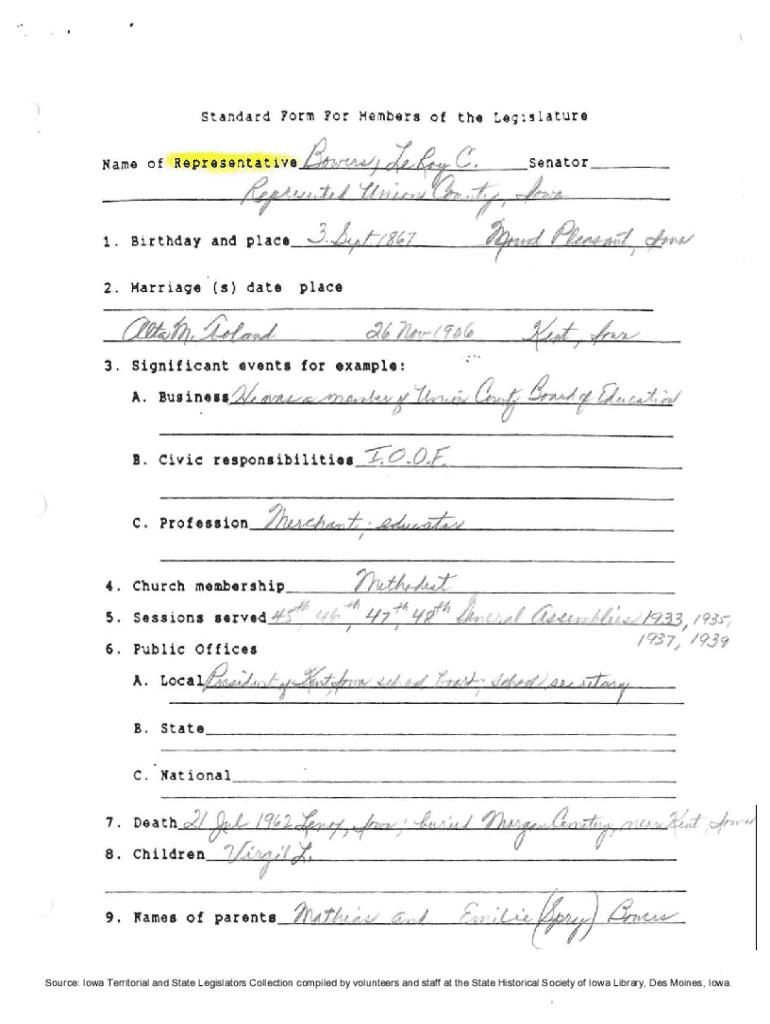 Standard Form For Members of the Legislature
Name of Representative Bowers, LeRoy C. Senator
Represented Union County, Iowa
1. Birthday and place 3 Sept 1867 Mound Pleasant, Iowa
2. Marriage (s) date place
Alta M. Toland 26 Nov 1906 Kent, Iowa
3. Significant events for example:
A. Business He was a member of Union County Board of Education
B. Civic responsibilities I.O.O.F.
C. Profession Merchant; educator
4. Church membership Methodist
5. Sessions served 45th, 46th, 47th, 48th General Assemblies 1933, 1935,
1937, 1939
6. Public Offices
A. Local President of Kent, Iowa school board; school secretary
B. State
C. National
7. Death 21 Jul 1962 Lenox, Iowa; buried Morgan Cemetery, near Kent, Iowa
8. Children Virgil L.
9. Names of parents Mathias and Emilie (Spry) Bowers
Source: Iowa Territorial and State Legislators Collection compiled by volunteers and staff at the State Historical Society of Iowa Library, Des Moines, Iowa.